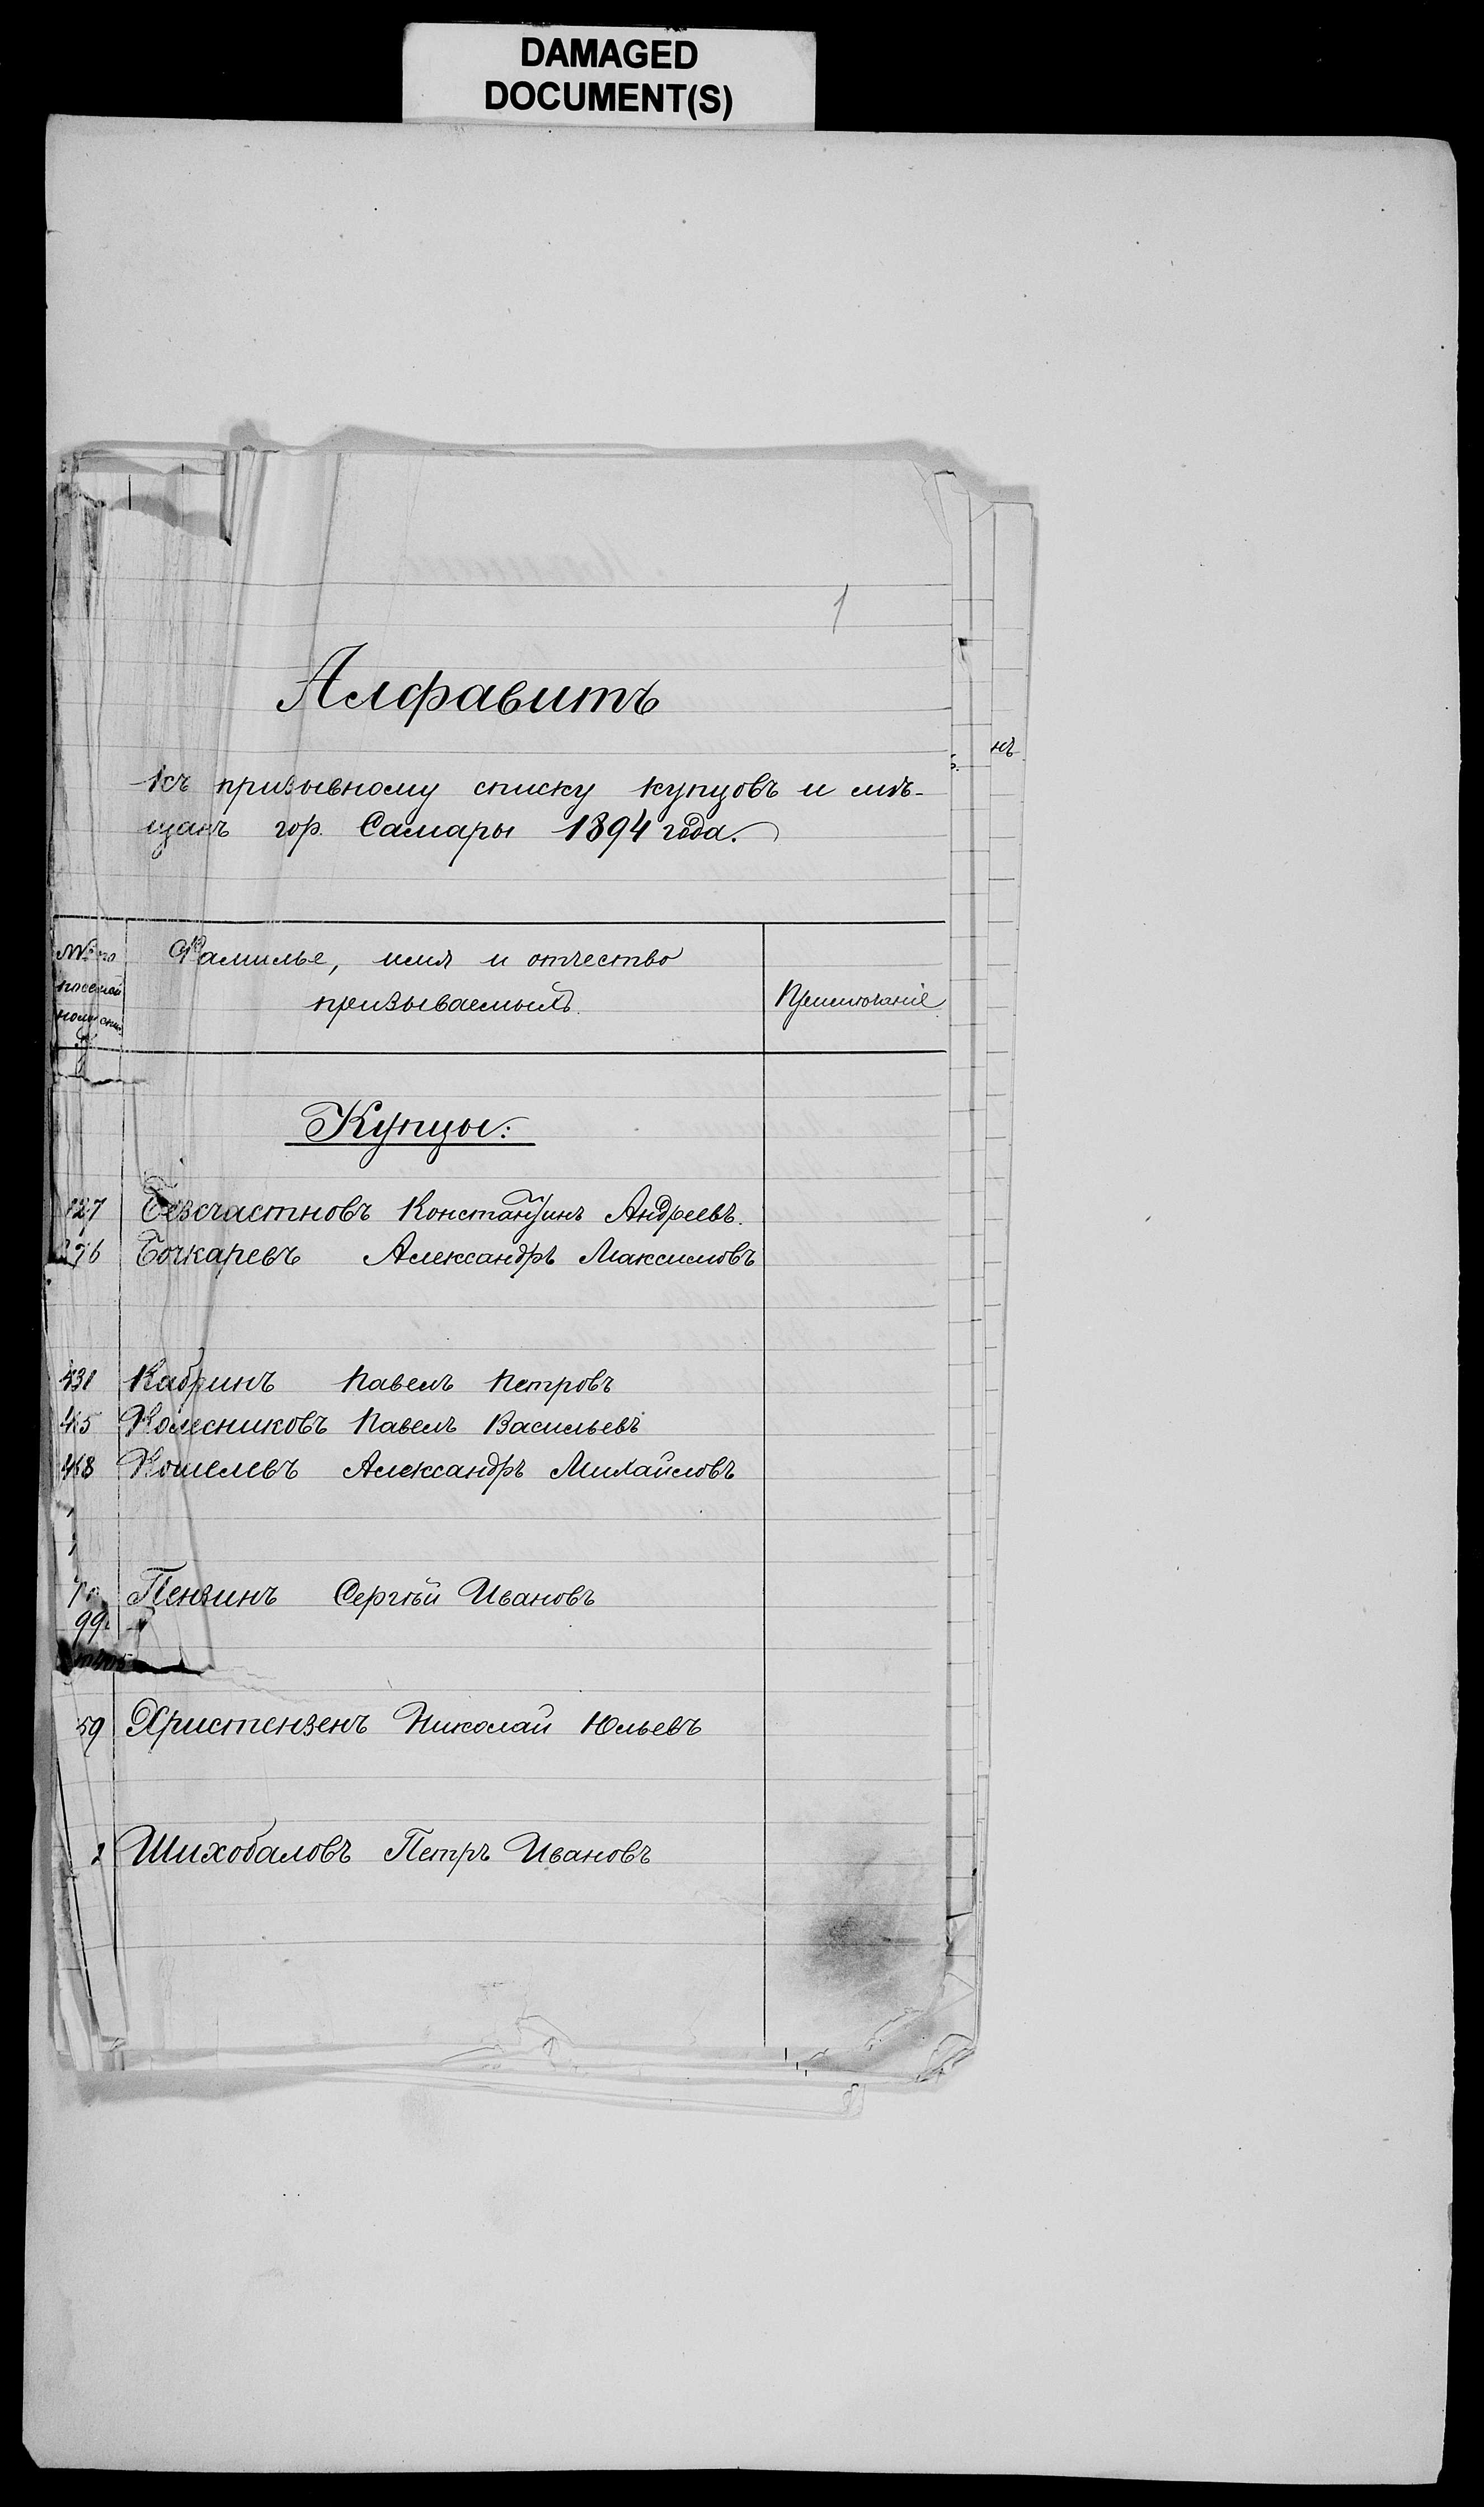 DAMAGED
DOCUMENT(S)
1
Алфавитъ
къ призывному списку купцовъ и мѣ-
щанъ гор. Самары 1894 года.
Фамилье, имя и отчество
призываемыхъ.
Примѣчаніе
Купцы:
Безсчастновъ Константинъ Андреевъ.
Бочкаревъ Александръ Максимовъ
431 Кабринъ Павелъ Петровъ
Колесниковъ Павелъ Васильевъ
468 Кошелевъ Александръ Михайловъ
Пензинъ Сергѣй Ивановъ
99
59 Христензенъ Николай Юльевъ
Шихобаловъ Петръ Ивановъ